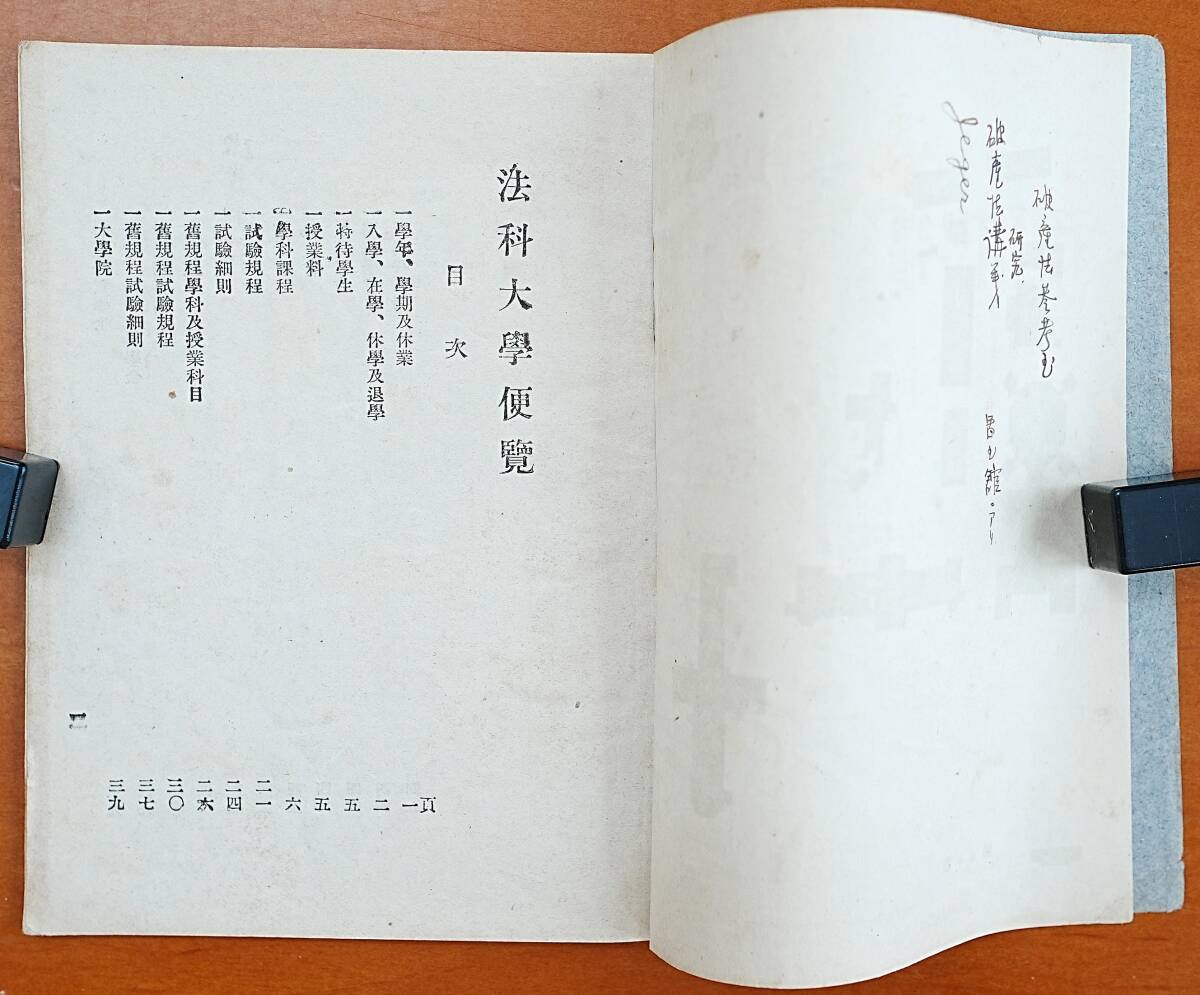 破産法参考書
研究
破産法講義
Jeger
法科大學便覽
目次
頁
一學年、學期及休業 一
一入學、在學、休學及退學 二
一特待學生 五
一授業料 五
一學科課程 六
一試驗規程 二一
一試驗細則 二四
一舊規程學科及授業科目 二六
一舊規程試驗規程 三〇
一舊規程試驗細則 三七
一大學院 三九
一